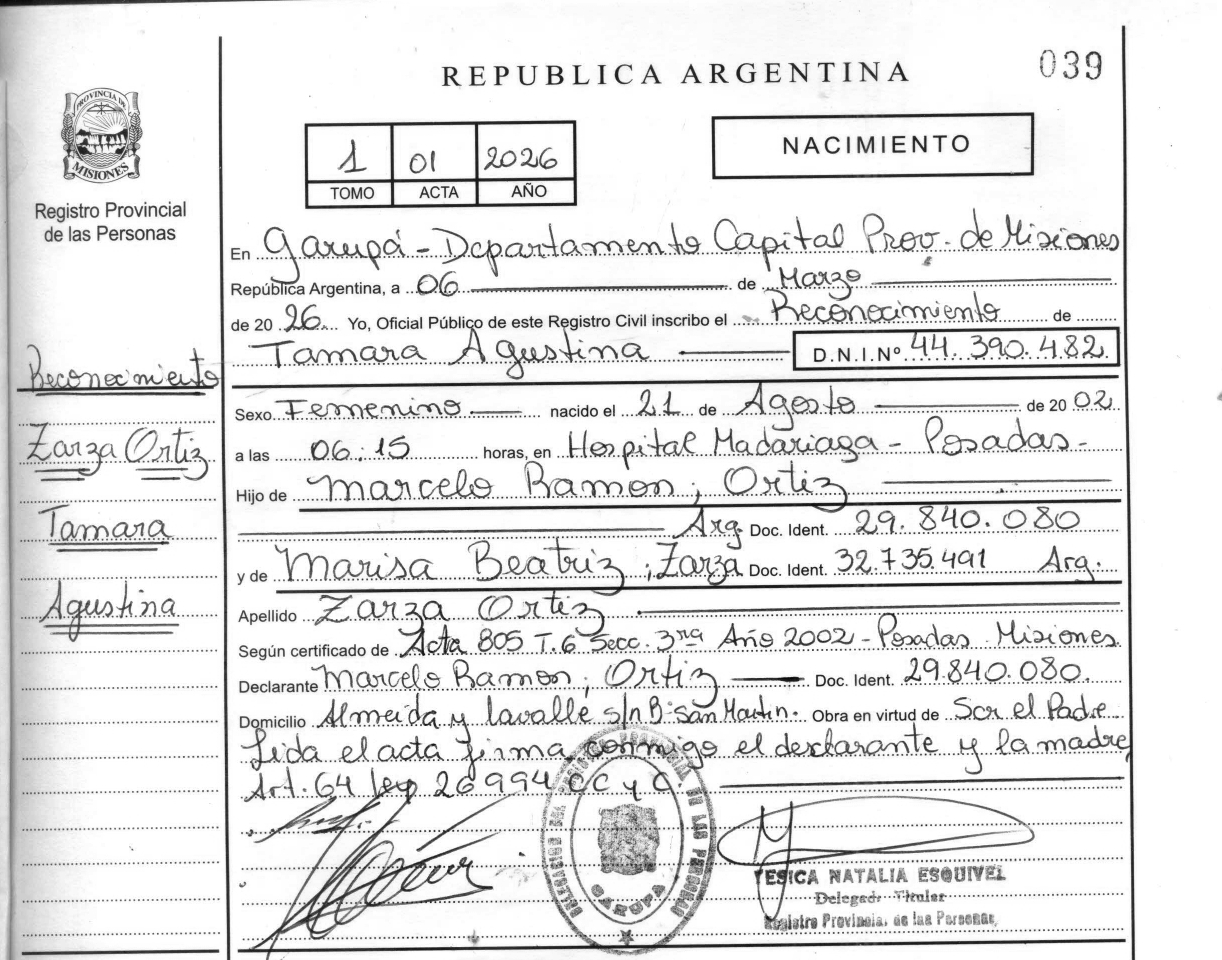 REPUBLICA ARGENTINA
039
PROVINCIA DE
MISIONES
Registro Provincial
de las Personas
1 01 2026
TOMO ACTA AÑO
NACIMIENTO
En Garupá - Departamento Capital Prov. de Misiones
República Argentina, a 06 de Marzo
de 20 26. Yo, Oficial Público de este Registro Civil inscribo el Reconocimiento de
Tamara Agustina D.N.I.Nº 44.390.482
Sexo Femenino nacido el 21 de Agosto de 20 02
a las 06:15 horas, en Hospital Madariaga - Posadas -
Hijo de Marcelo Ramon, Ortiz
Arg. Doc. Ident. 29.840.080
y de Marisa Beatriz, Zarza Doc. Ident. 32.735.491 Arg.
Apellido Zarza Ortiz
Según certificado de Acta 805 T.6 Secc. 3ra Año 2002 - Posadas Misiones
Declarante Marcelo Ramon, Ortiz Doc. Ident. 29.840.080.
Domicilio Almeida y lavalle s/n Bº San Martin. Obra en virtud de Ser el Padre
Lida el acta firma conmigo el desclarante y la madre
Art. 64 ley 26994 CC y C.
Reconocimiento
Zarza Ortiz
Tamara
Agustina
DELEGACION DEL REGISTRO PROVINCIAL DE LAS PERSONAS
GARUPA
YESICA NATALIA ESQUIVEL
Delegada Titular
Registro Provincial de las Personas